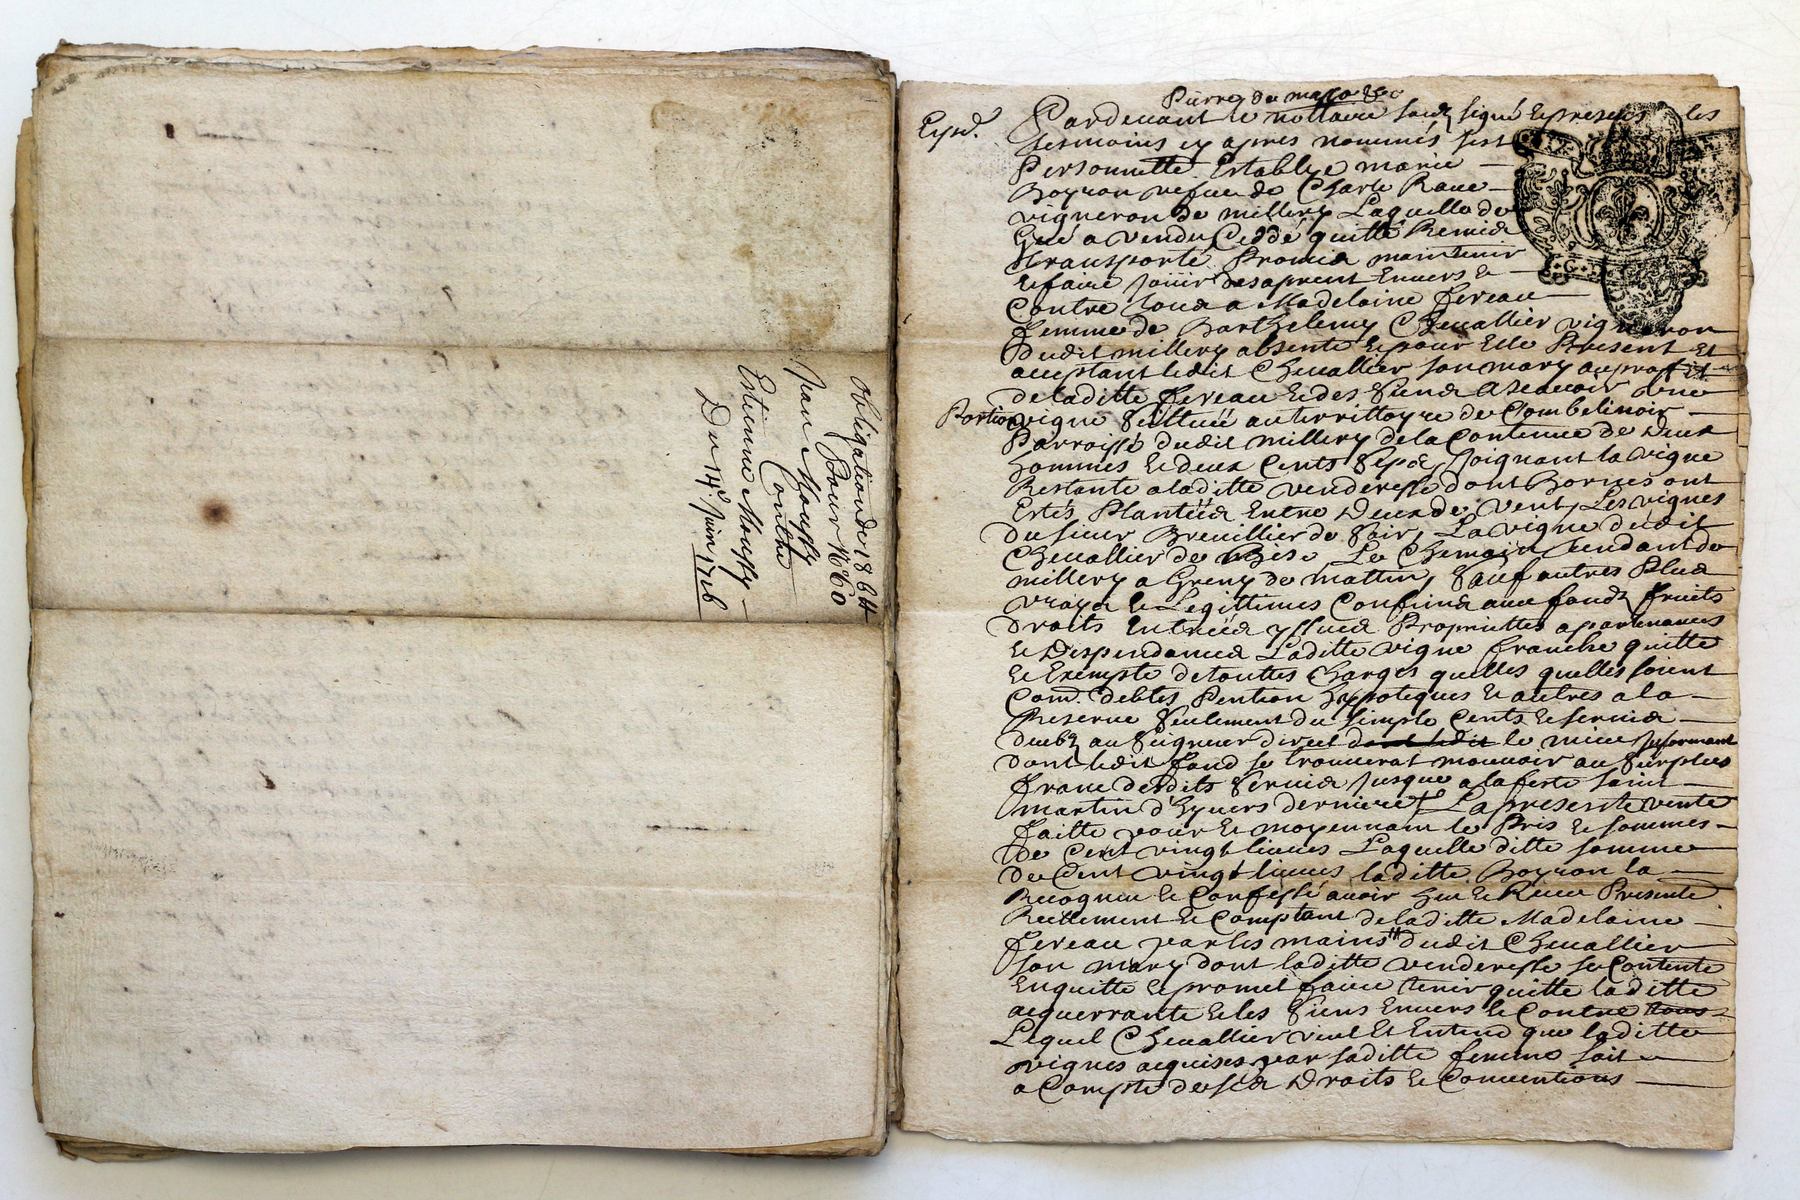 obligation de 186 ll
Pour N° 60
Jean Moussy
Contre
Estienne Mousty
Du 14e Juin 1716
Expd.
Pardevant le nottaire soubz signé & presents les
tesmoins cy apres nommés sest
Personnelle Establye marie
Boyron vefue de Charle Raue
vigneron de millery Laquelle de
Gré a vendu Ceddé quitté Remis
transporté Promis maintenir
& faire jouir des apresent Envers &
Contre tous a Madelaine fereau
femme de Barthelemy Cheuallier vigneron
dudit millery absente & pour Elle Present Et
acceptant ledit Cheuallier son mary au proffit
de laditte fereau & des siens Asçauoir une
Portion vigne scittuée au territtoyre de Combelinoir
Parroisse dudit millery de la Contenue de deux
hommes & deux Cents seps, joignant la vigne
Restante a laditte venderesse dont Bornes ont
Estés Plantées Entre deux de vent, Les vignes
du sieur Breuillier de soir, La vigne dudit
Cheuallier de Bise, Le Chemain tendant de
millery a Greny de mattin, sauf autres Plus
vrays & Legittimes Confins aux fonds fruits
droits Entrées yssues Proprietes apartenances
& Despendances Laditte vigne franche quitte
& Exempte de touttes Charges quelles quelles soient
Com. debtes Pention hypoteques & autres a la
Reserue seulement du simple Cents & seruis
deubz au seigneur direct dont ledit le mieux jnformant
dont ledit fond se trouuerat mouuoir au surplus
franc desdits seruis jusque a la feste saint
martin d'hyuers derniere La presente vente
faitte pour & moyennant le Pris & sommes
de Cent vingt liures Laquelle ditte somme
de Cent vingt liures laditte Boyron la
Recognu & Confessé auoir heu & Receu Presente
Reellement & Comptant de laditte Madelaine
fereau par les mains dudit Cheuallier
son mary dont laditte venderesse se Contente
Enquitte & promet faire tenir quitte laditte
acquerrante & les siens Enuers & Contre tous
Lequel Cheuallier veut Et Entend que laditte
vignes acquises par saditte femme soit
a Compte de ses Droits & Conuentions